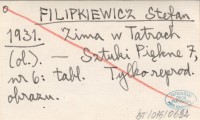 FILIPKIEWICZ Stefan.
1931. Zima w Tatrach
(ol.). — Sztuki Piękne 7,
nr 6: tabl. Tylko reprod.
obrazu.